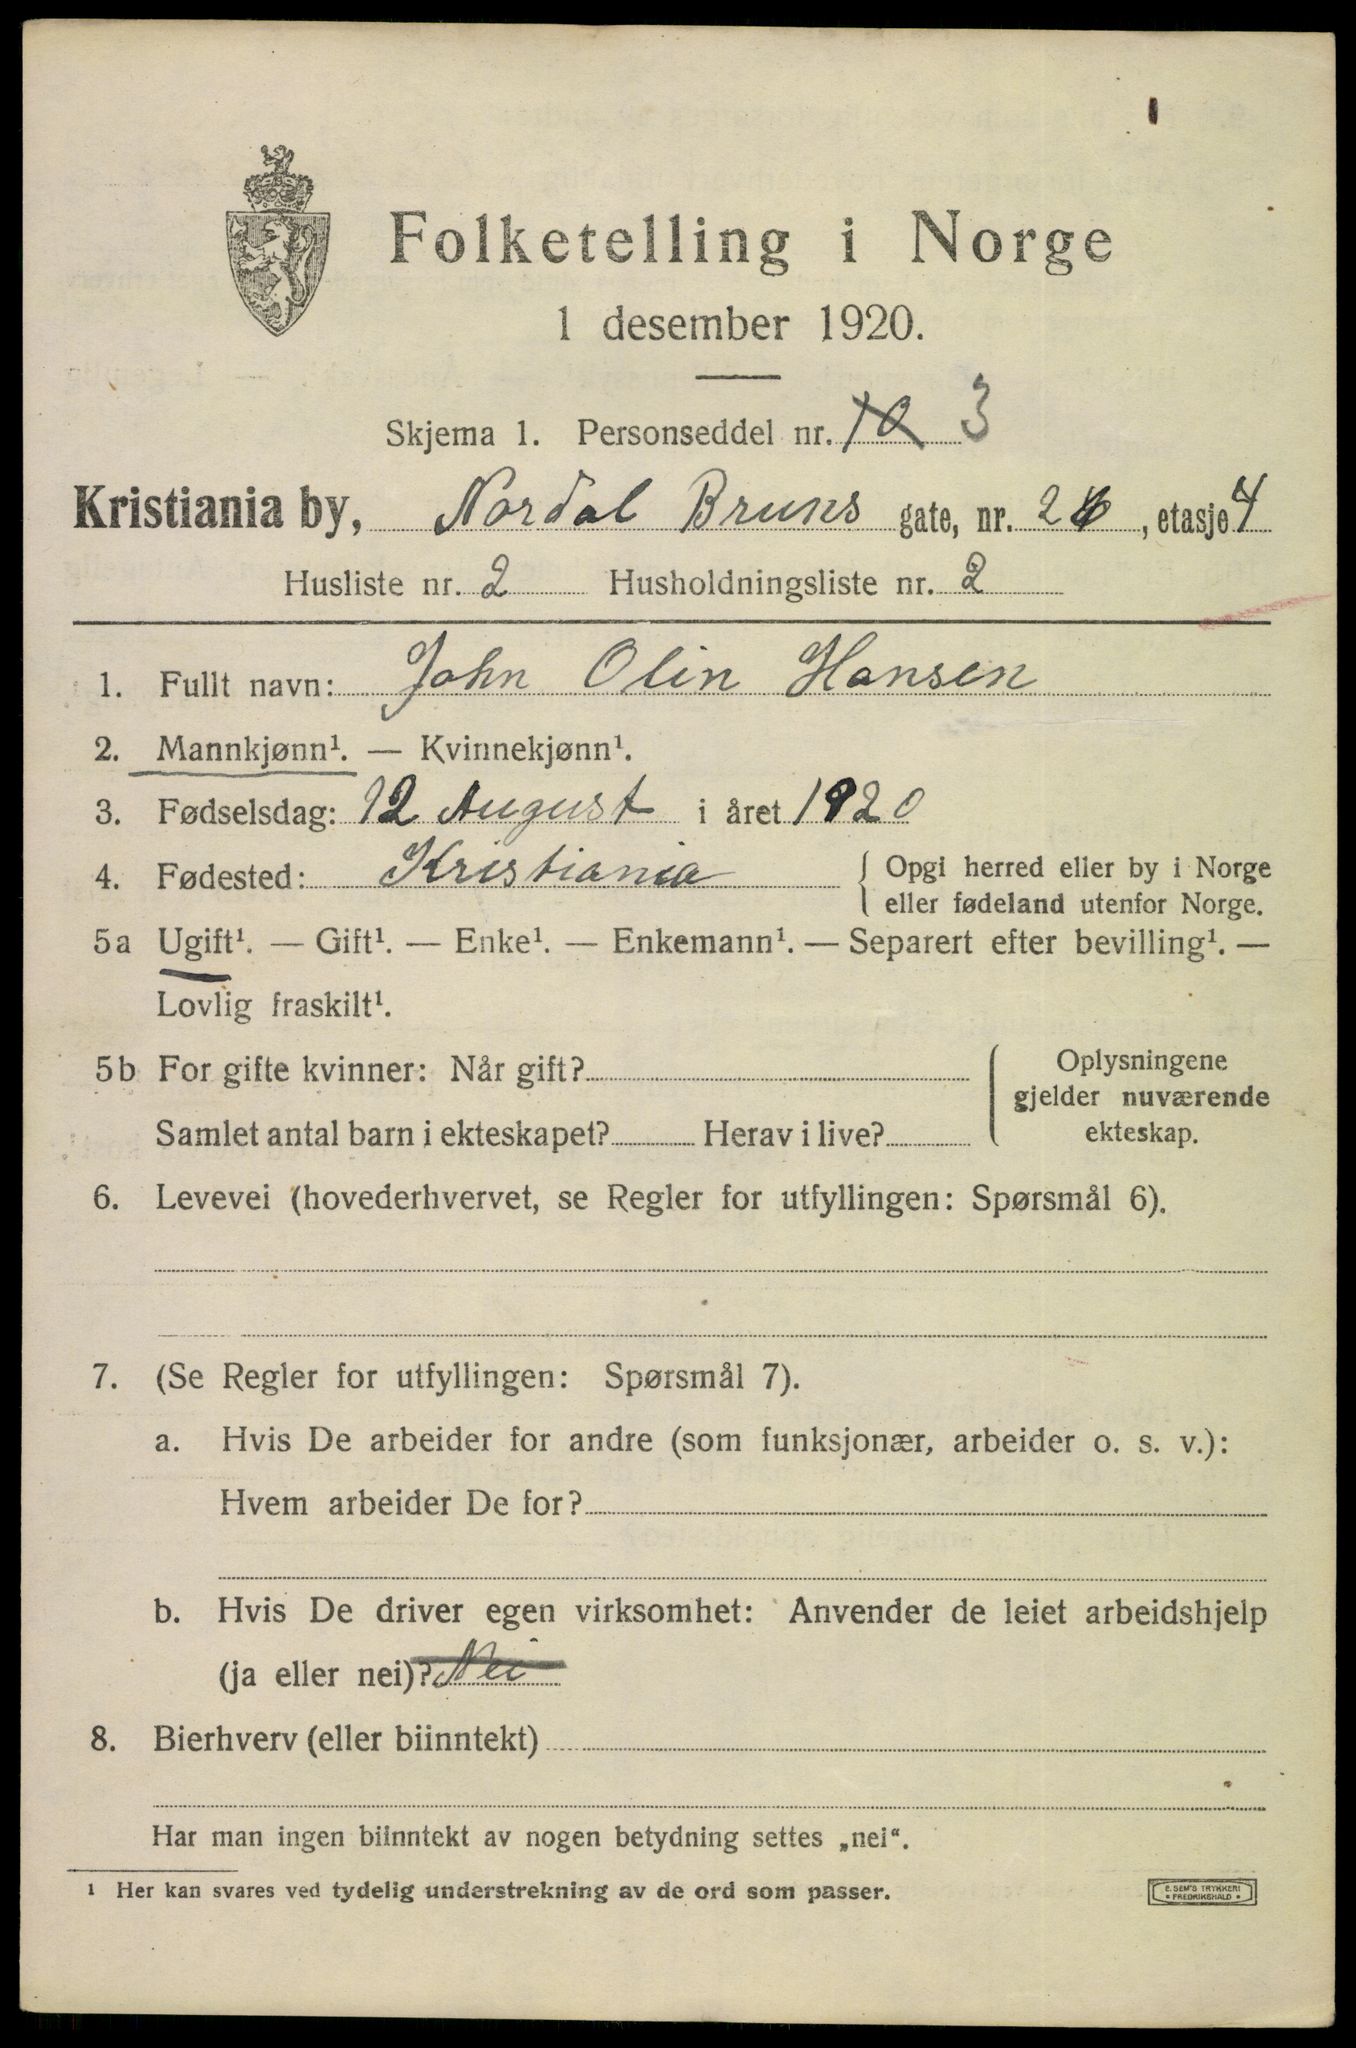 Folketelling i Norge
1 desember 1920.
Skjema 1. Personseddel nr. 10 3
Kristiania by, Nordal Bruns gate, nr. 26, etasje 4
Husliste nr. 2 Husholdningsliste nr. 2
1. Fullt navn: John Olin Hansen
2. Mannkjønn¹. — Kvinnekjønn¹.
3. Fødselsdag: 12 August i året 1920
4. Fødested: Kristiania { Opgi herred eller by i Norge
eller fødeland utenfor Norge.
5a Ugift¹. — Gift¹. — Enke¹. — Enkemann¹. — Separert efter bevilling¹. —
Lovlig fraskilt¹.
5b For gifte kvinner: Når gift?
Samlet antal barn i ekteskapet? Herav i live?
Oplysningene
gjelder nuværende
ekteskap.
6. Levevei (hovederhvervet, se Regler for utfyllingen: Spørsmål 6).
7. (Se Regler for utfyllingen: Spørsmål 7).
a. Hvis De arbeider for andre (som funksjonær, arbeider o. s. v.):
Hvem arbeider De for?
b. Hvis De driver egen virksomhet: Anvender de leiet arbeidshjelp
(ja eller nei)? Nei
8. Bierhverv (eller biinntekt)
Har man ingen biinntekt av nogen betydning settes „nei“.
¹ Her kan svares ved tydelig understrekning av de ord som passer.
E. SEM'S TRYKKERI
FREDRIKSHALD